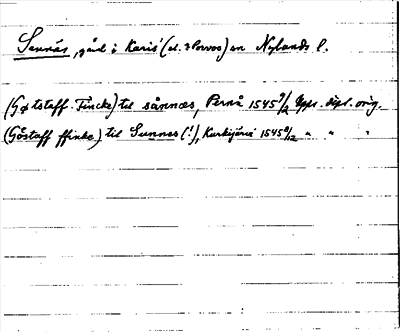 Sannäs, gård i Karis (el. ? Borgå) sn Nylands l.
(Gøtstaff Fincke) til sånnæs, Pernå 1545 9/2 Upps. dipl. orig.
(Göstaff ffinke) til Sunnes (!), Kurkijärvi 1545 8/12 " " "